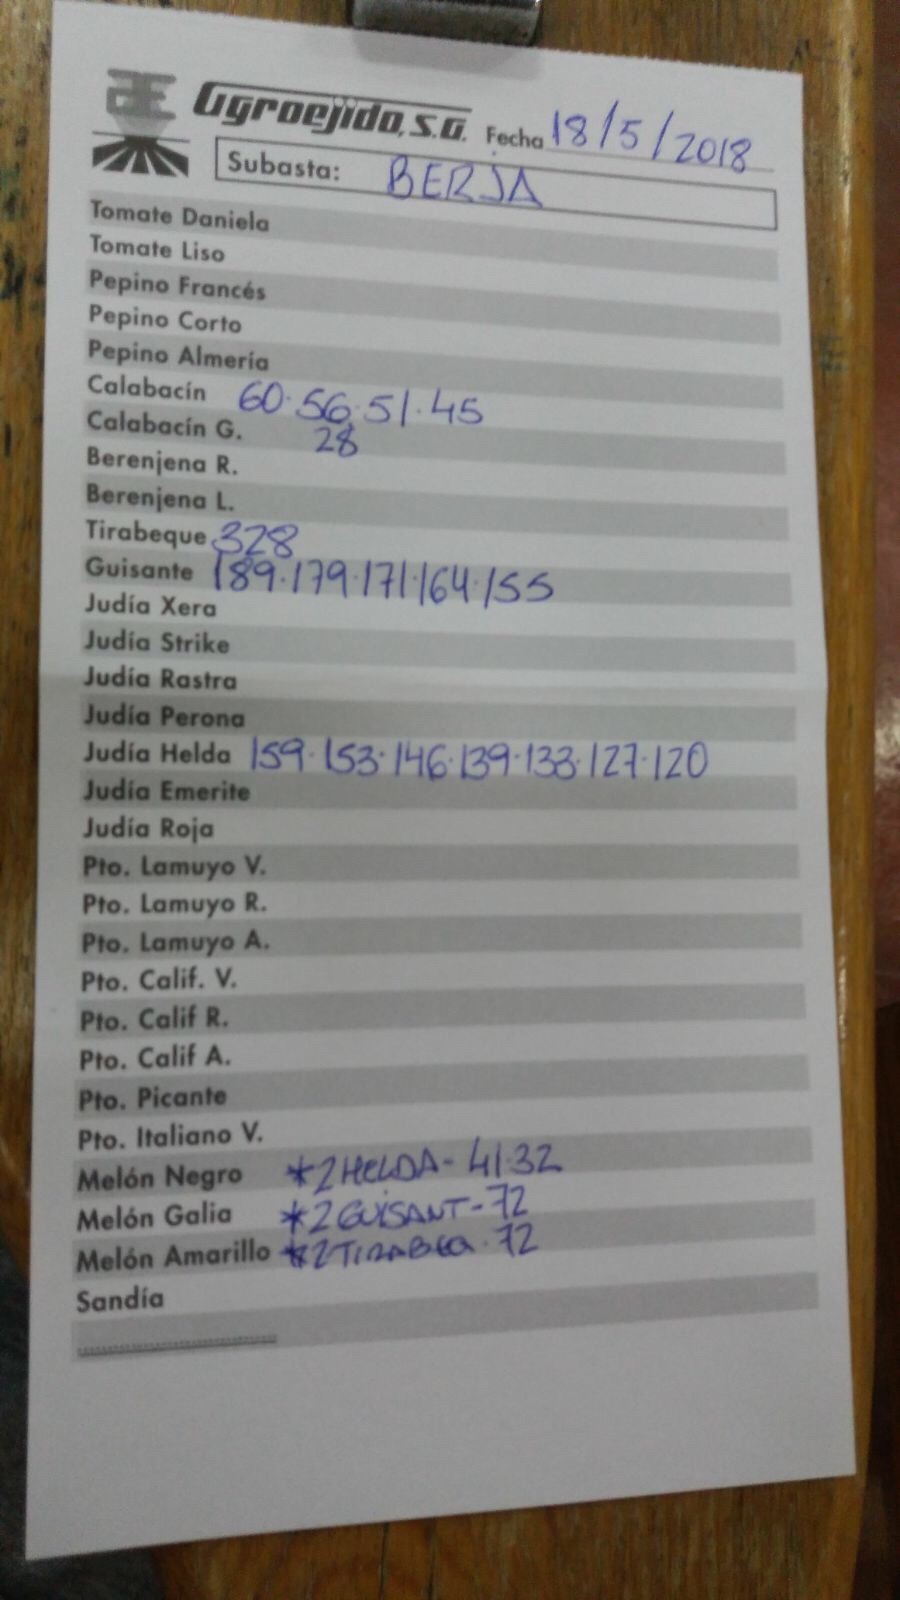 Agroejido, S.A. Fecha 18/5/2018
Subasta: BERJA
Tomate Daniela
Tomate Liso
Pepino Francés
Pepino Corto
Pepino Almería
Calabacín 60.56.51.45
Calabacín G. 28
Berenjena R.
Berenjena L.
Tirabeque 328
Guisante 189.179.171.164.155
Judía Xera
Judía Strike
Judía Rastra
Judía Perona
Judía Helda 159.153.146.139.133.127.120
Judía Emerite
Judía Roja
Pto. Lamuyo V.
Pto. Lamuyo R.
Pto. Lamuyo A.
Pto. Calif. V.
Pto. Calif R.
Pto. Calif A.
Pto. Picante
Pto. Italiano V.
Melón Negro *2 HELDA- 41.32
Melón Galia *2 GUISANT-72
Melón Amarillo *2 TIRABEQ.72
Sandía